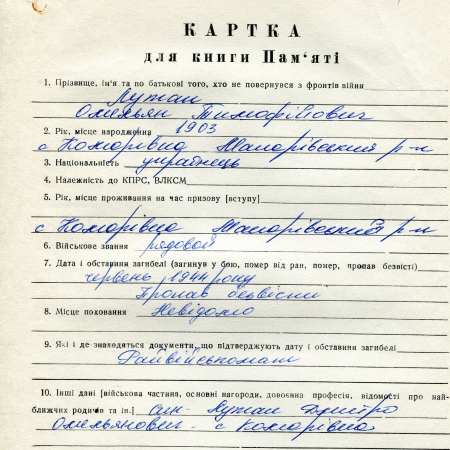 КАРТКА
для книги Пам'яті
1. Прізвище, ім'я та по батькові того, хто не повернувся з фронтів війни
Лупан
Омельян Тимофійович
2. Рік, місце народження 1903
с Комарівка Макарівський р-н
3. Національність українець
4. Належність до КПРС, ВЛКСМ
5. Рік, місце проживання на час призову [вступу]
с Комарівка Макарівський р-н
6. Військове звання рядовой
7. Дата і обставини загибелі (загинув у бою, помер від ран, помер, пропав безвісті)
червень 1944 року
Пропав безвісти
8. Місце поховання Невідомо
9. Які і де знаходяться документи, що підтверджують дату і обставини загибелі
Райвійськомат
10. Інші дані [військова частина, основні нагороди, довоєнна професія, відомості про най-
ближчих родичів та ін.] син - Лупан Дмитро
Омельянович - с Комарівка